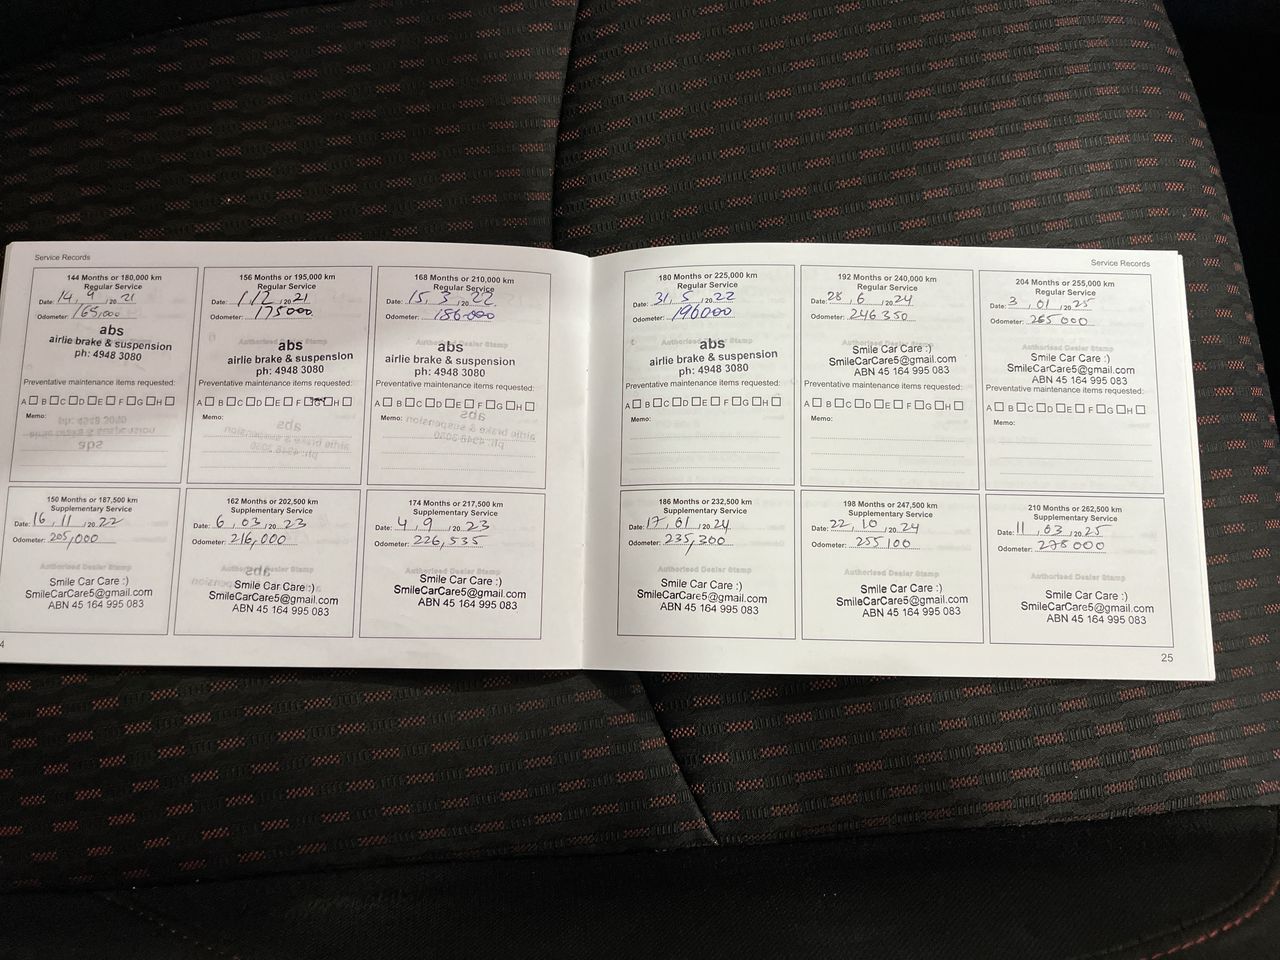 Service Records
144 Months or 180,000 km
Regular Service
Date: 14, 9, 20 21
Odometer: 165,000
abs
airlie brake & suspension
ph: 4948 3080
Preventative maintenance items requested:
A B C D E F G H
Memo:
156 Months or 195,000 km
Regular Service
Date: 1 / 12 / 20 21
Odometer: 175000
abs
airlie brake & suspension
ph: 4948 3080
Preventative maintenance items requested:
A B C D E F G H
Memo:
168 Months or 210,000 km
Regular Service
Date: 15, 3, 20 22
Odometer: 186000
Authorised Dealer Stamp
abs
airlie brake & suspension
ph: 4948 3080
Preventative maintenance items requested:
A B C D E F G H
Memo:
150 Months or 187,500 km
Supplementary Service
Date: 16, 11, 20 22
Odometer: 205,000
Authorised Dealer Stamp
Smile Car Care :)
SmileCarCare5@gmail.com
ABN 45 164 995 083
162 Months or 202,500 km
Supplementary Service
Date: 6, 03, 20 23
Odometer: 216,000
Smile Car Care :)
SmileCarCare5@gmail.com
ABN 45 164 995 083
174 Months or 217,500 km
Supplementary Service
Date: 4, 9, 20 23
Odometer: 226,535
Authorised Dealer Stamp
Smile Car Care :)
SmileCarCare5@gmail.com
ABN 45 164 995 083
4
Service Records
180 Months or 225,000 km
Regular Service
Date: 31, 5, 20 22
Odometer: 196000
abs
airlie brake & suspension
ph: 4948 3080
Preventative maintenance items requested:
A B C D E F G H
Memo:
192 Months or 240,000 km
Regular Service
Date: 28, 6, 20 24
Odometer: 246 350
Authorised Dealer Stamp
Smile Car Care :)
SmileCarCare5@gmail.com
ABN 45 164 995 083
Preventative maintenance items requested:
A B C D E F G H
Memo:
204 Months or 255,000 km
Regular Service
Date: 3, 01, 20 25
Odometer: 265 000
Authorised Dealer Stamp
Smile Car Care :)
SmileCarCare5@gmail.com
ABN 45 164 995 083
Preventative maintenance items requested:
A B C D E F G H
Memo:
186 Months or 232,500 km
Supplementary Service
Date: 17, 01, 20 24
Odometer: 235,300
Authorised Dealer Stamp
Smile Car Care :)
SmileCarCare5@gmail.com
ABN 45 164 995 083
198 Months or 247,500 km
Supplementary Service
Date: 22, 10, 20 24
Odometer: 255 100
Authorised Dealer Stamp
Smile Car Care :)
SmileCarCare5@gmail.com
ABN 45 164 995 083
210 Months or 262,500 km
Supplementary Service
Date: 11, 03, 20 25
Odometer: 278 000
Authorised Dealer Stamp
Smile Car Care :)
SmileCarCare5@gmail.com
ABN 45 164 995 083
25